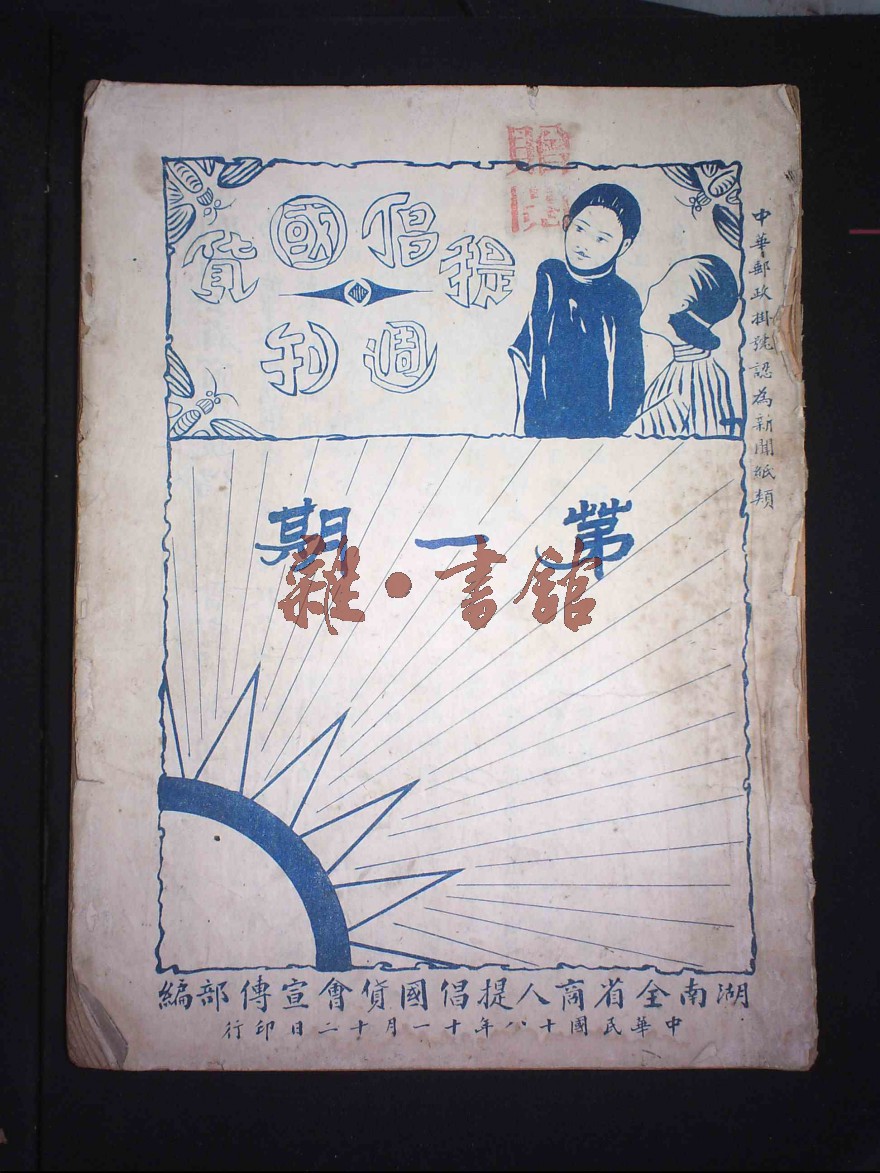 提倡國貨
週刊
贈閱
中華郵政掛號認為新聞紙類
第一期
雜·書館
湖南全省商人提倡國貨會宣傳部編
中華民國十八年十一月十二日印行